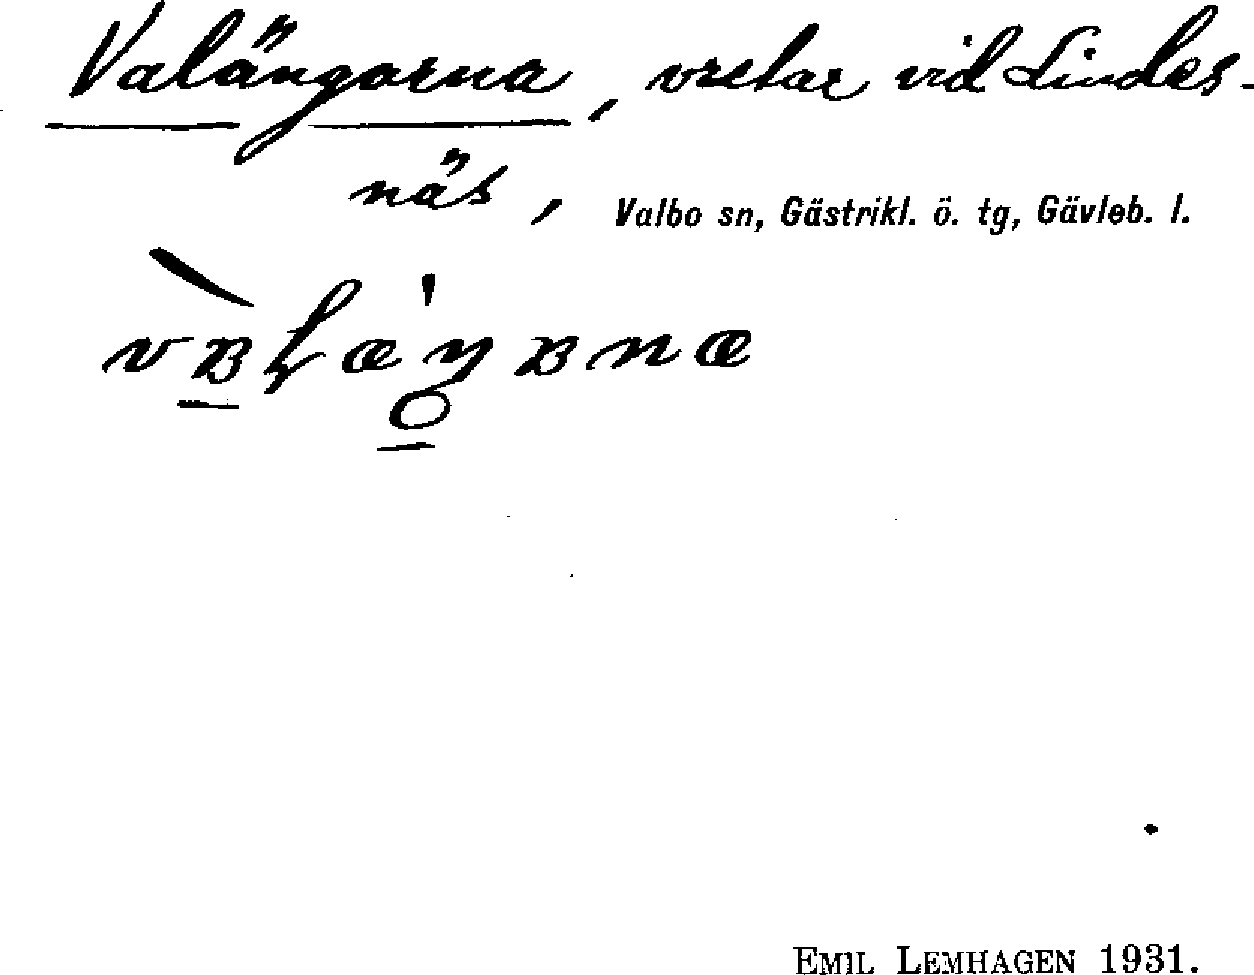 Valängarna, vretar vid Lindes-
näs, Valbo sn, Gästrikl. ö. tg, Gävleb. l.
EMIL LEMHAGEN 1931.